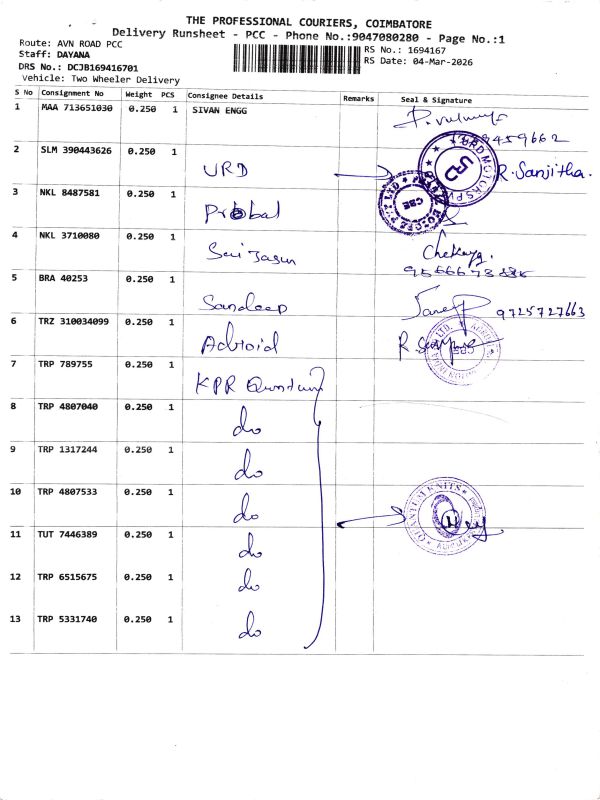 THE PROFESSIONAL COURIERS, COIMBATORE
Delivery Runsheet - PCC - Phone No.:9047080280 - Page No.:1
Route: AVN ROAD PCC
Staff: DAYANA
DRS No.: DCJB169416701
Vehicle: Two Wheeler Delivery
RS No.: 1694167
RS Date: 04-Mar-2026
S No Consignment No Weight PCS Consignee Details Remarks Seal & Signature
1 MAA 713651030 0.250 1 SIVAN ENGG
2 SLM 390443626 0.250 1 URD R.Sanjitha.
URD MOTORS PV
URD
3 NKL 8487581 0.250 1
CBE
4 NKL 3710080 0.250 1
5 BRA 40253 0.250 1 Sandeep 9725727663
6 TRZ 310034099 0.250 1
7 TRP 789755 0.250 1 KPR Quantum
8 TRP 4807040 0.250 1 do
9 TRP 1317244 0.250 1 do
10 TRP 4807533 0.250 1 do
QUANTUM KNITS
11 TUT 7446389 0.250 1 do
12 TRP 6515675 0.250 1 do
13 TRP 5331740 0.250 1 do